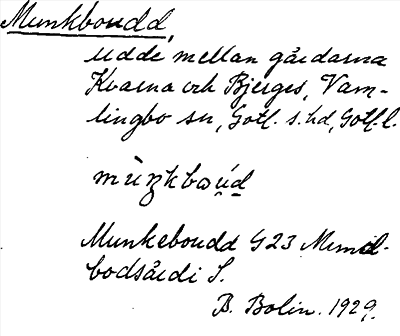 Munkboudd,
udde mellan gårdarna
Kvarna och Bjerges, Vam-
lingbo sn, Gotl. s. hd, Gotl. l.
mùŋkbou̯d
Munkeboudd G23 Mund-
bodsårdi S.
B. Bolin. 1929.